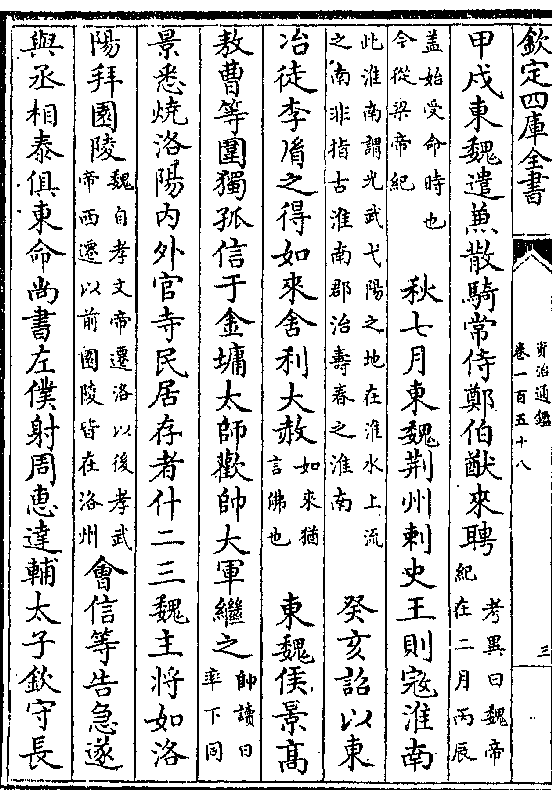 欽定四庫全書
資治通鑑
卷一百五十八
三
甲戌東魏遣兼散騎常侍鄭伯猷來聘考異曰魏帝紀在二月丙辰
蓋始受命時也今從梁帝紀 秋七月東魏荆州刺史王則寇淮南
此淮南謂光武弋陽之地在淮水上流之南非指古淮南郡治壽春之淮南 癸亥詔以東
冶徒李㣧之得如來舍利大赦如來猶言佛也 東魏侯景高
敖曹等圍獨孤信于金墉太師歡帥大軍繼之帥讀曰率下同
景悉燒洛陽内外官寺民居存者什二三魏主將如洛
陽拜園陵魏自孝文帝遷洛以後孝武帝西遷以前園陵皆在洛州會信等告急遂
與丞相泰俱東命尚書左僕射周惠達輔太子欽守長